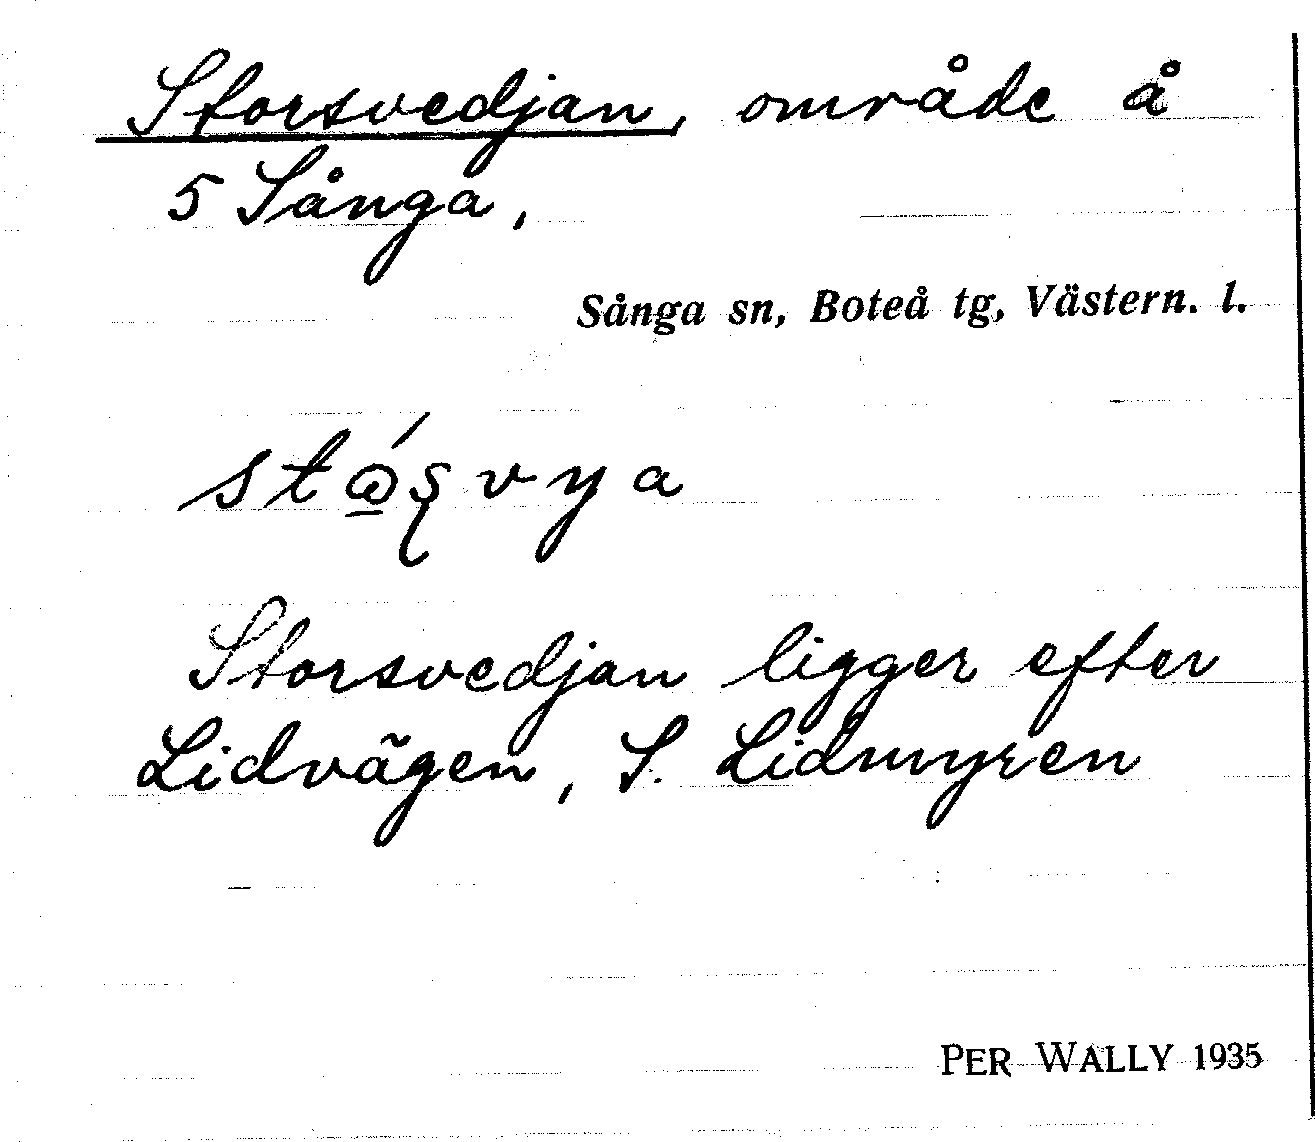 Storsvedjan, område å
5 Sånga,
Sånga sn, Boteå tg, Västern. l.
stώ̲ʂvya
Storsvedjan ligger efter
Lidvägen, S. Lidmyren
PER WALLY 1935